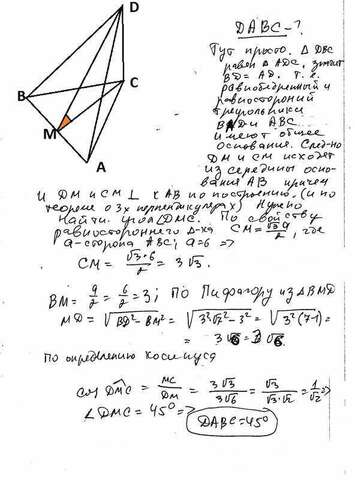 DABC-?
D
B
C
M
A
Тут просто. Δ DBC
равен Δ ADC, значит
BD = AD. Т. е.
равнобедренный и
равносторонний
треугольники
BAD и ABC
имеют общее
основание. След-но
DM и CM исходят
из середины осно-
вания AB причем
и DM и CM ⊥ к AB по построению. (и по
теореме о 3х перпендикулярах) Нужно
найти угол DMC. По свойству
равностороннего Δ-ка CM = √3a/2, где
a-сторона ABC; a=6 =>
CM = √3·6/2 = 3√3.
BM = a/2 = 6/2 = 3; По Пифагору из Δ BMD
MD = √(BD²-BM²) = √(3²√7²-3²) = √(3²(7-1)) =
= 3√6 = 3√6
По определению косинуса
cos DMC = MC/DM = 3√3/3√6 = √3/√3·√2 = 1/√2 =>
∠DMC = 45° => DABC = 45°